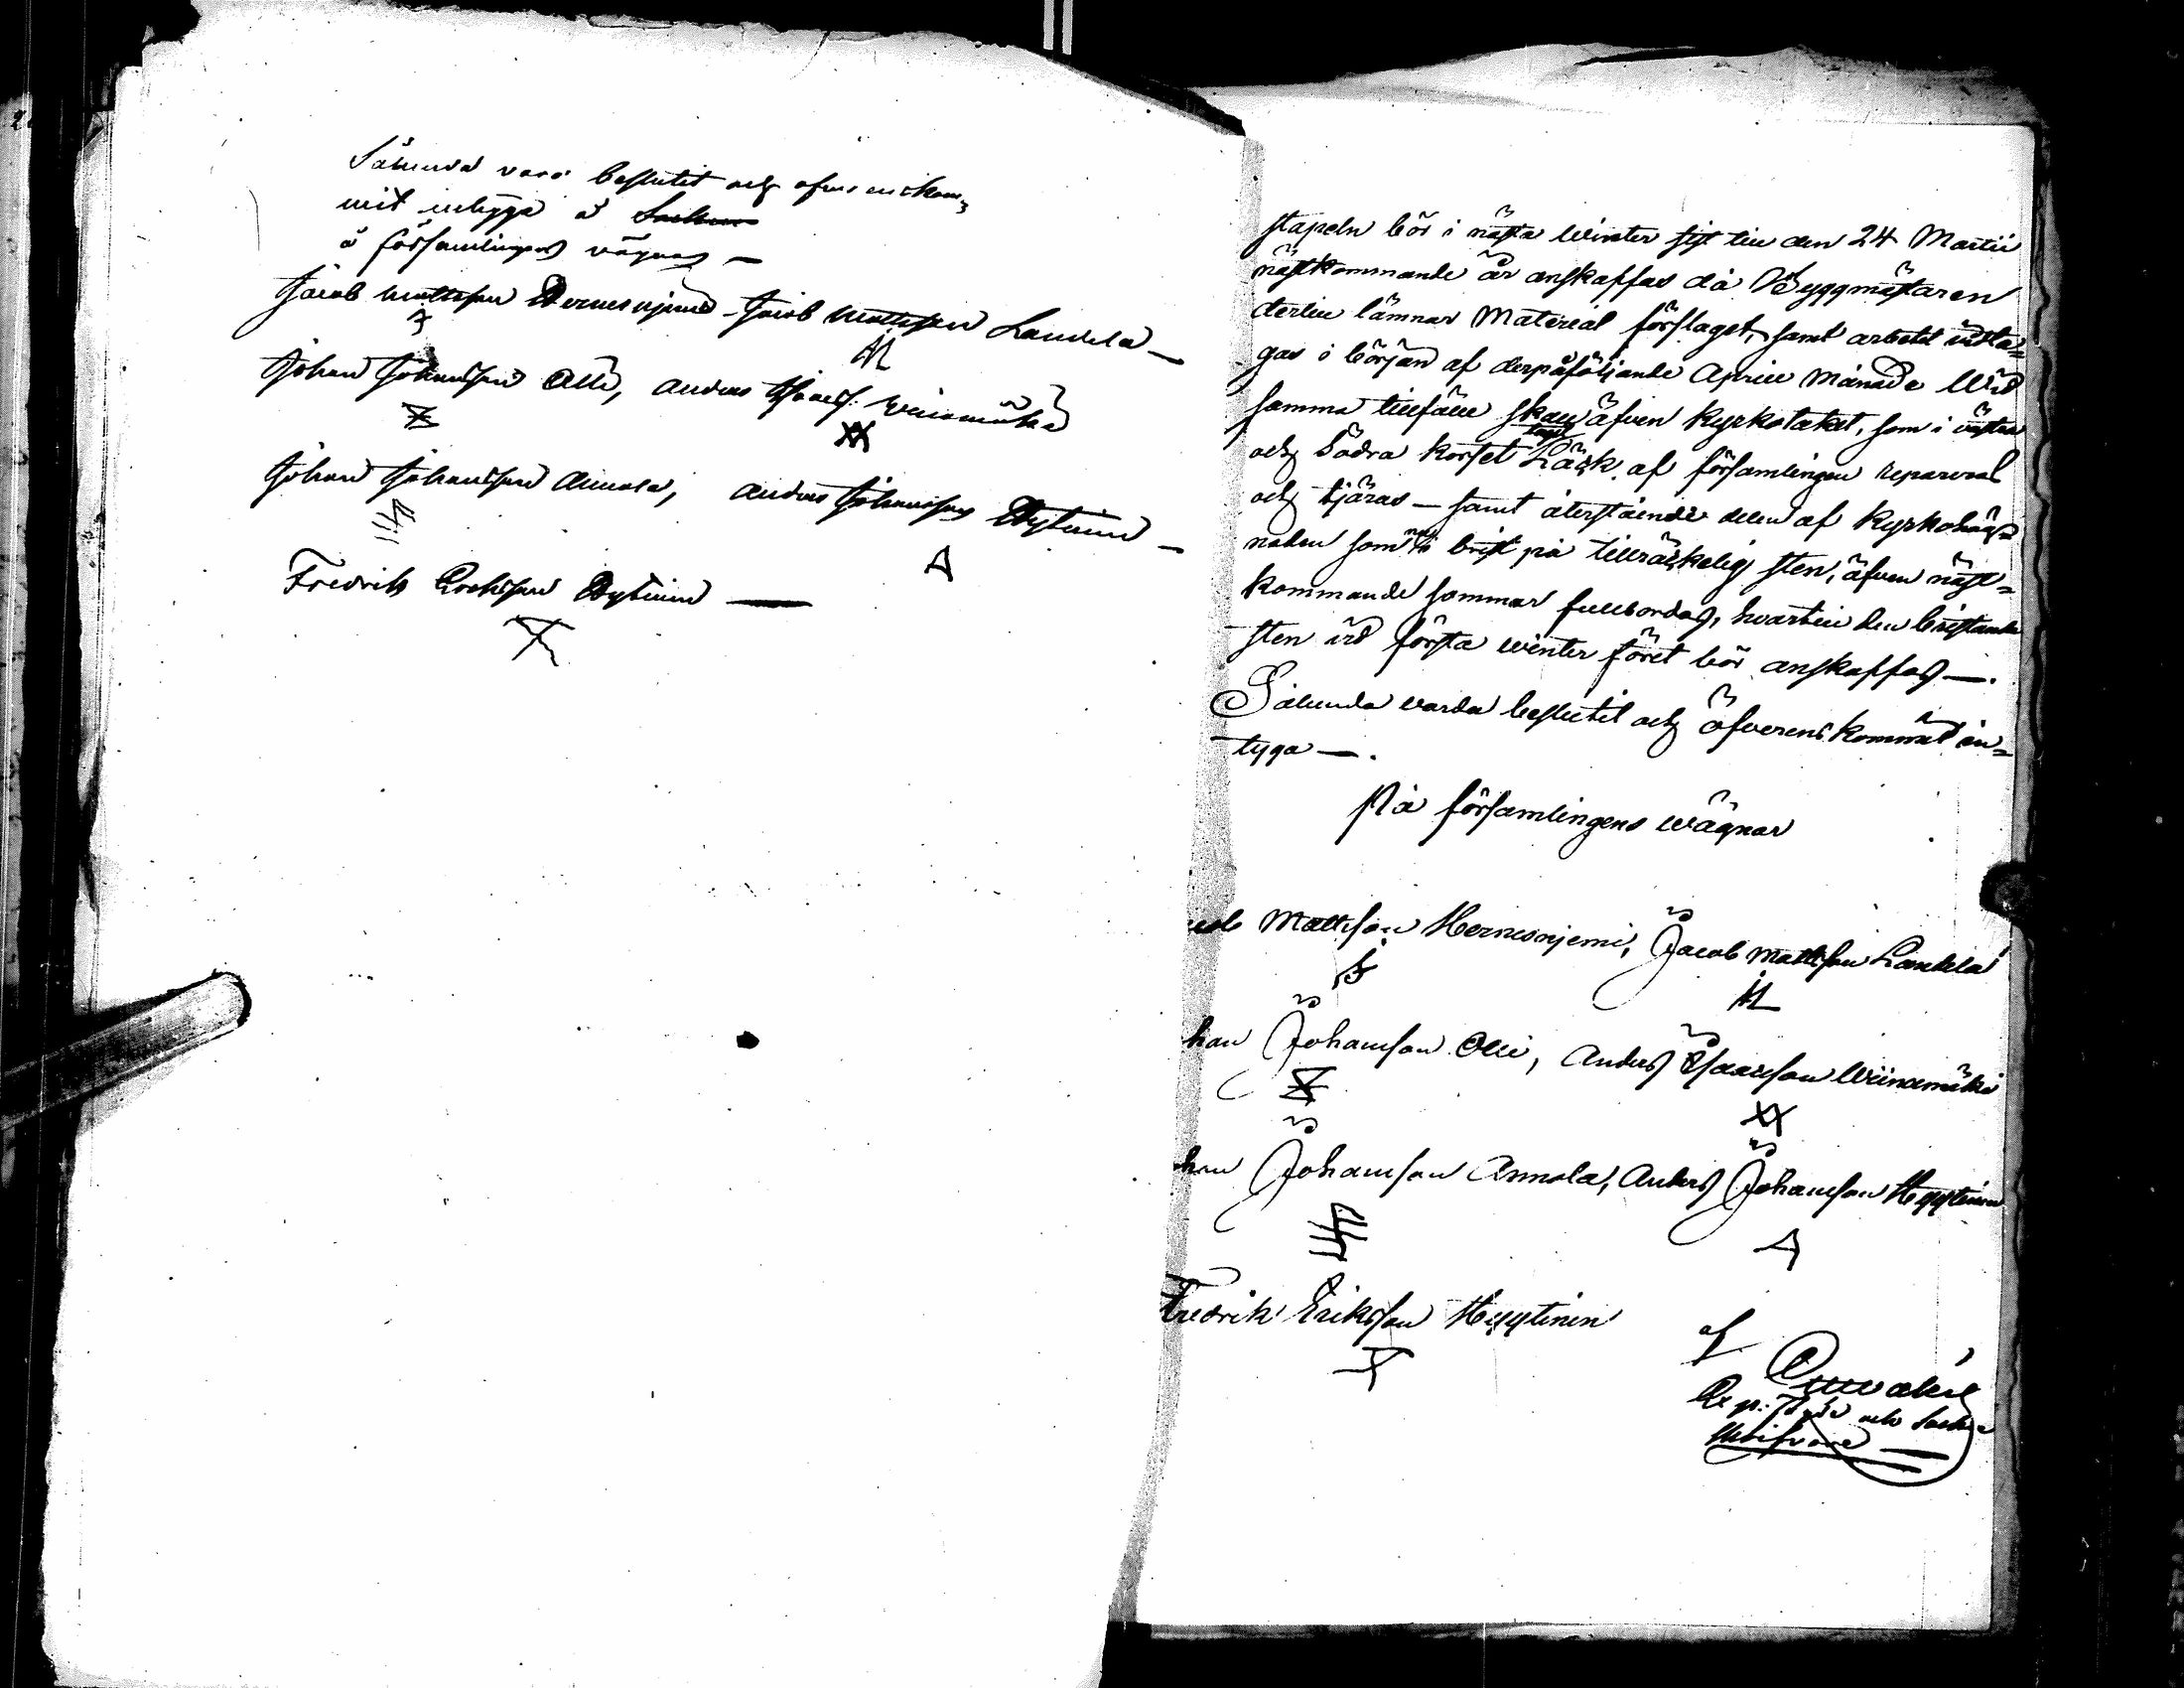 Sålunda vara beslutit och öfverenskom=
mit intyga å
å församlingens vägnar —
Jacob Mattsson Hernesniemi - Jacob Mattsson Landela —
Johan Johansson Olli, Anders Isacss: Wiinamäki
Johan Johansson Annola, Anders Johansson Hyytinen —
Fredrik Ericksson Hyytinen —
stapeln bör i nästa Winter sist till den 24 Martii
nästkommande år anskaffas då Byggmästaren
dertill lämnar Material förslaget, samt arbetet vidta=
gas i början af derpåföljande Aprill Månad Wid
samma tillfälle skall äfven kyrkotaket, som i västra
och Södra korset tagit Läck af församlingen repareras
och tjäras — samt återstående delen af Kyrkohäg=
naden som brist på tillräckelig sten, äfven näst=
kommande sommar fullbordas, hvartill den bristande
sten vid första winter föret bör anskaffas —.
Sålunda warda beslutit och öfverenskommit in=
tyga —.
På församlingens wägnar
Mattsson Hernesniemi, Jacob Mattsson Landela
han Johansson Olli, Anders Isacsson Wiinamäki
han Johansson Annola, Anders Johansson Hyytinen
Fredrik Eriksson Hyytinen
af